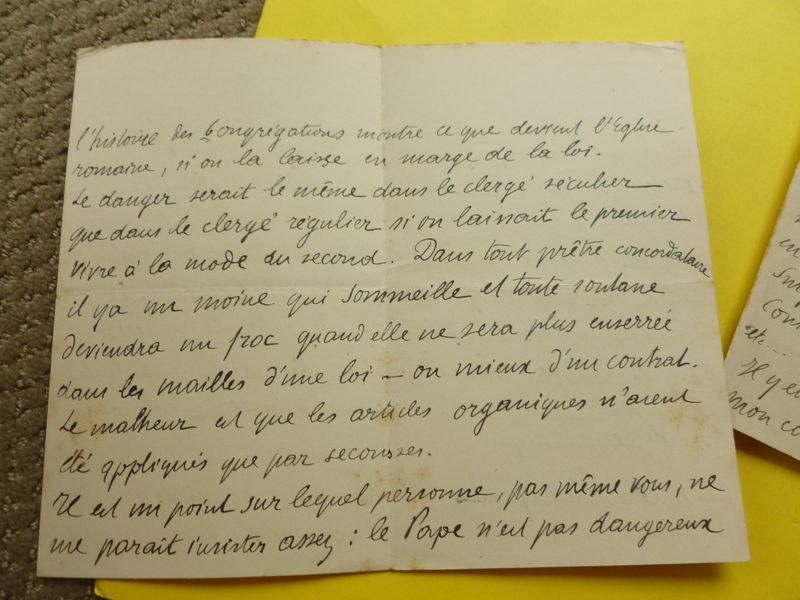 l'histoire des Congrégations montre ce que devient l'Eglise
romaine, si on la laisse en marge de la loi.
Le danger serait le même dans le clergé séculier
que dans le clergé régulier si on laissait le premier
vivre à la mode du second. Dans tout prêtre concordataire
il y a un moine qui sommeille et toute soutane
deviendra un froc quand elle ne sera plus enserrée
dans les mailles d'une loi – ou mieux d'un contrat.
Le malheur est que les articles organiques n'aient
été appliqués que par secousses.
Il est un point sur lequel personne, pas même vous, ne
me paraît insister assez : le Pape n'est pas dangereux
etc...
Il y e
mon co